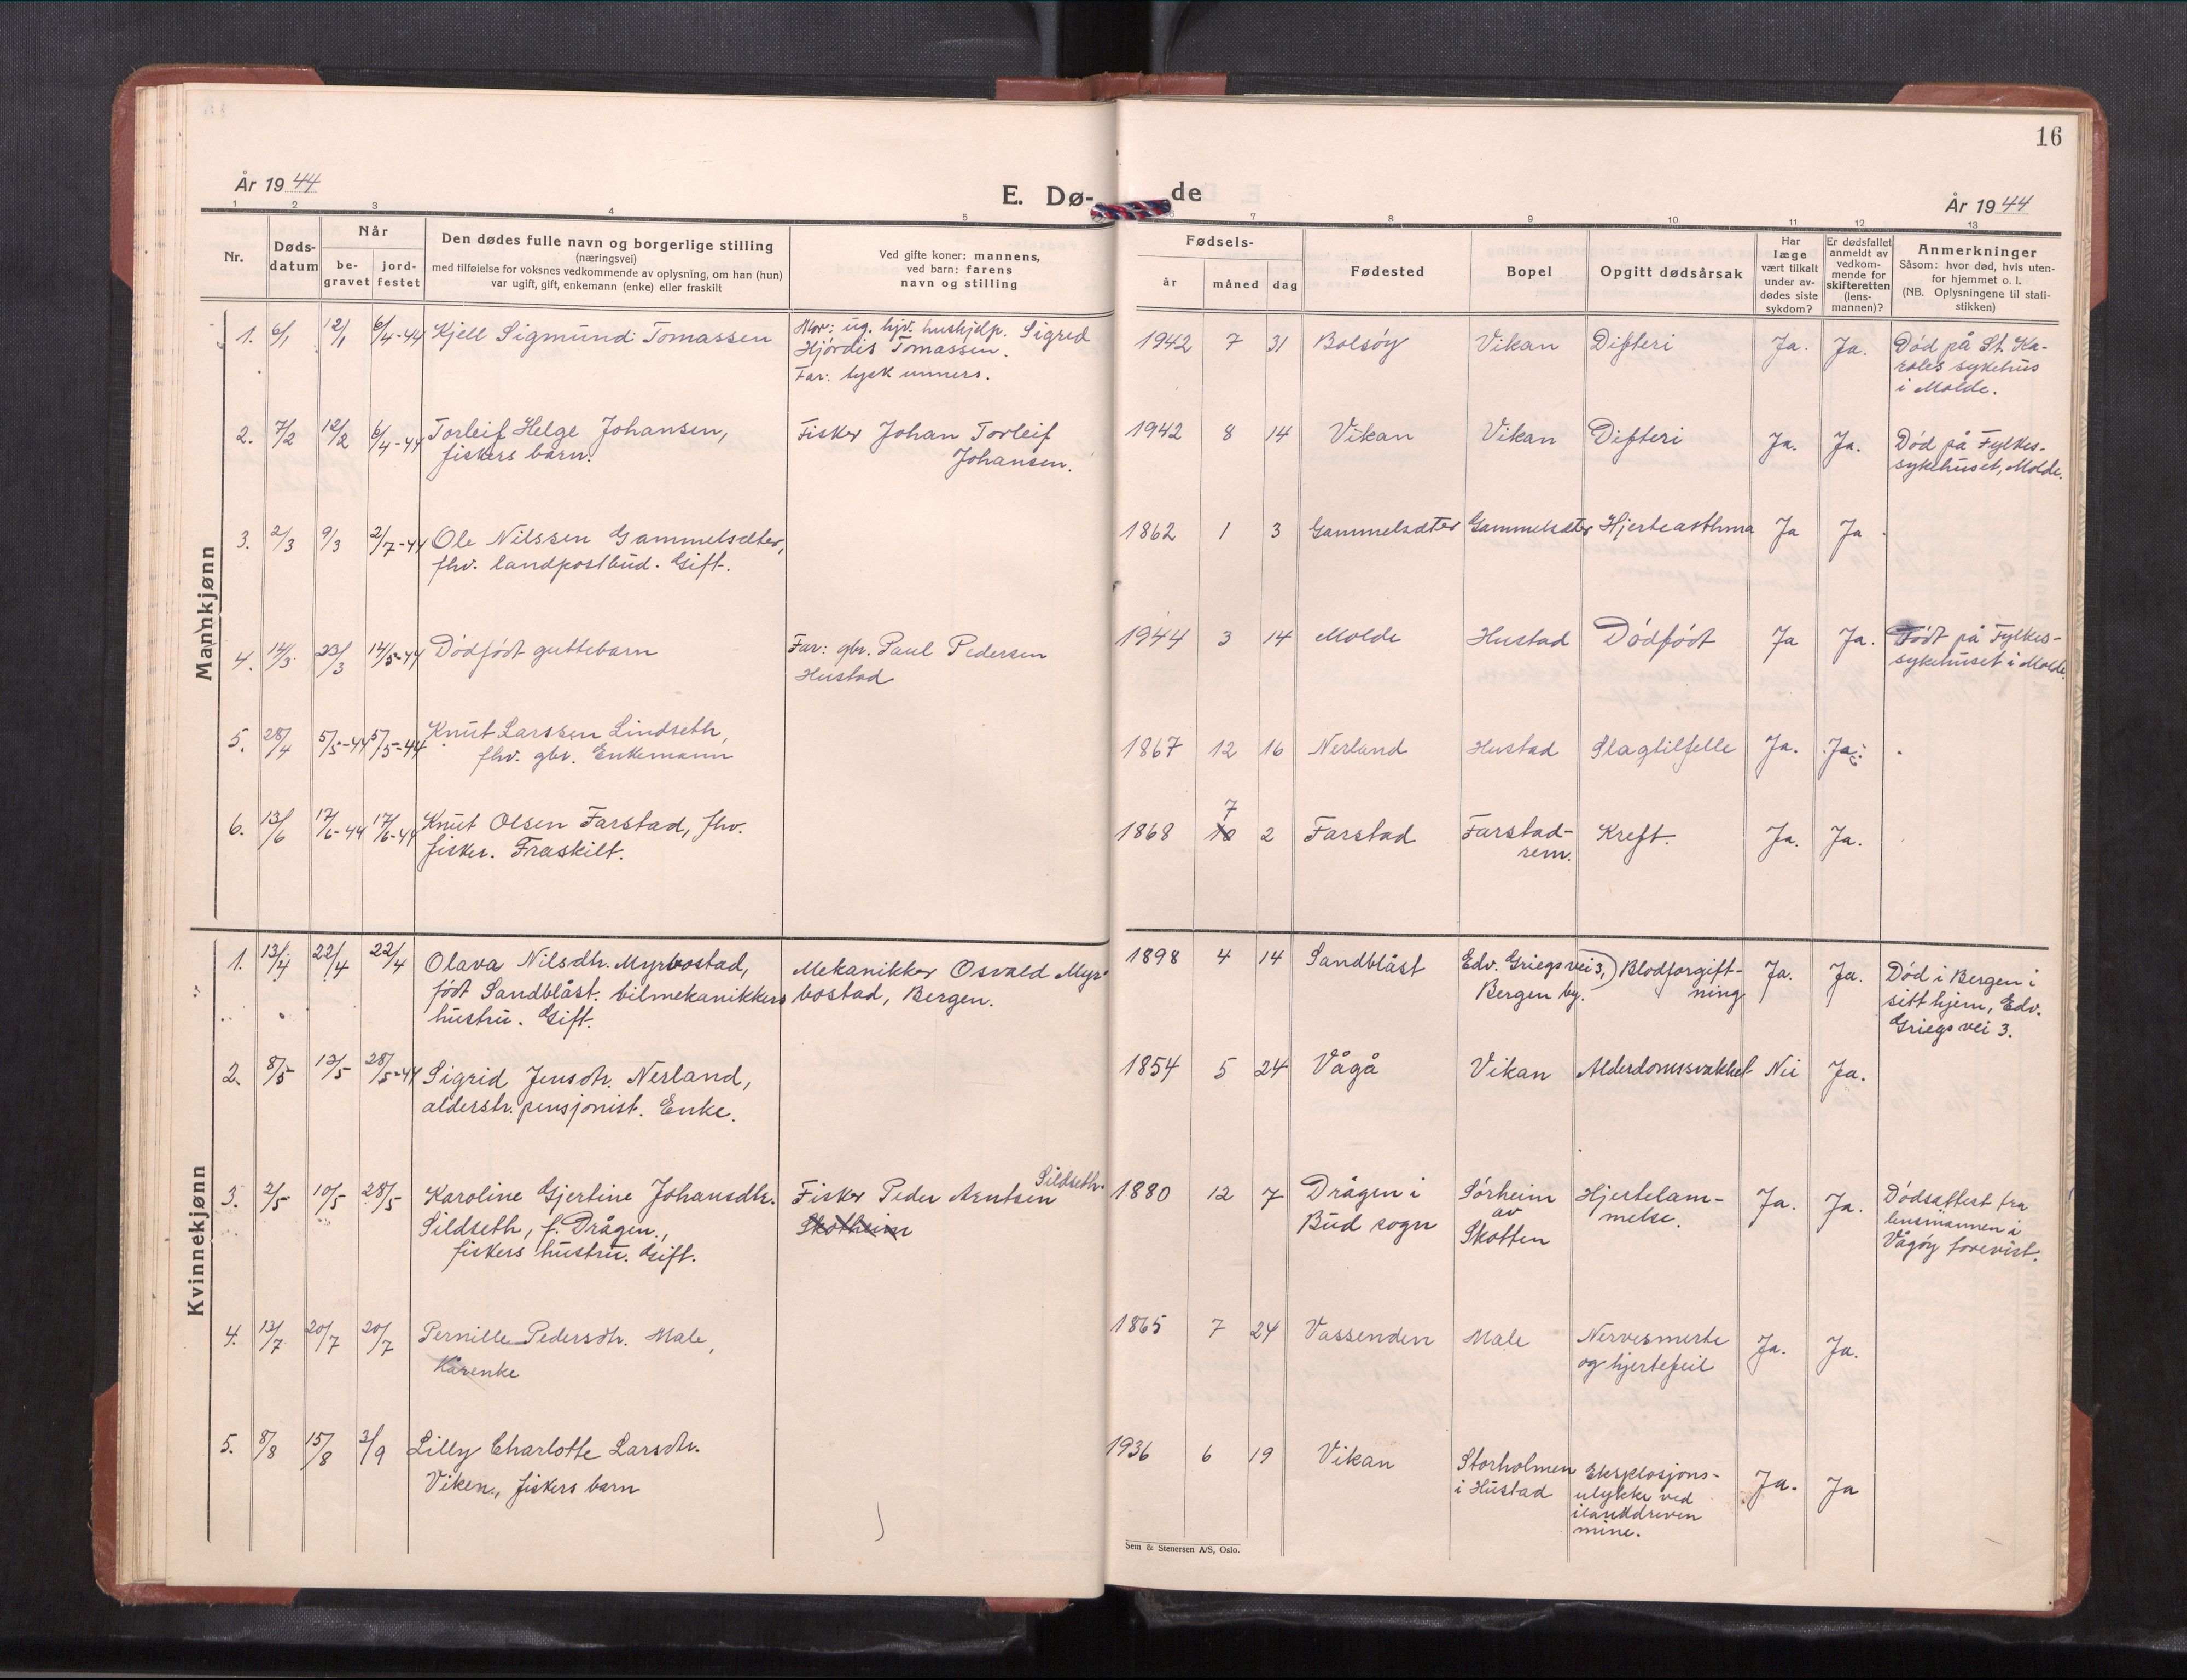 16
År 1944
E. Dø-
de
År 1944
1 2 3 4 5 6 7 8 9 10 11 12 13
Nr.
Døds-
datum
Når
be-
gravet
jord-
festet
Den dødes fulle navn og borgerlige stilling
(næringsvei)
med tilføielse for voksnes vedkommende av oplysning, om han (hun)
var ugift, gift, enkemann (enke) eller fraskilt
Ved gifte koner: mannens,
ved barn: farens
navn og stilling
Fødsels-
år måned dag
Fødested
Bopel
Opgitt dødsårsak
Har
læge
vært tilkalt
under av-
dødes siste
sykdom?
Er dødsfallet
anmeldt av
vedkom-
mende for
skifteretten
(lens-
mannen)?
Anmerkninger
Såsom: hvor død, hvis uten-
for hjemmet o. l.
(NB. Oplysningene til stati-
stikken)
Mannkjønn
1. 6/1 12/1 6/4-44 Kjell Sigmund Tomassen
Mor: ug. hjv. hushjelp. Sigrid
Hjördis Tomassen.
Far: tysk unners.
1942 7 31 Bolsöy Vikan Difteri Ja. Ja.
Död på St. Ka-
roles sykehus
i Molde.
2. 7/2 12/2 6/4-44 Torleif Helge Johansen,
fiskers barn.
Fisker Johan Torleif
Johansen.
1942 8 14 Vikan Vikan Difteri Ja. Ja.
Död på Fylkes-
sykehuset, Molde.
3. 2/3 9/3 2/7-44 Ole Nilssen Gammelsæter,
fhv. landpostbud. Gift.
1862 1 3 Gammelsæter Gammelsæter Hjerteasthma Ja Ja
4. 14/3 23/3 14/5-44 Dödfödt guttebarn
Far: gbr. Paul Pedersen
Hustad
1944 3 14 Molde Hustad Dödfödt Ja Ja.
Födt på Fylkes-
sykehuset i Molde.
5. 28/4 5/5-44 5/5-44 Knut Larssen Lindseth,
fhv. gbr. Enkemann
1867 12 16 Nerland Hustad Slagtilfelle Ja. Ja.
6. 13/6 17/6-44 17/6-44 Knut Olsen Farstad, fhv.
fisker. Fraskilt.
7
1868 10 2 Farstad Farstad- Kreft. Ja. Ja.
rem.
Kvinnekjønn
1. 13/4 22/4 22/4 Olava Nilsdtr. Myrbostad,
född Sandblåst. bilmekanikkers
hustru. Gift.
Mekanikker Osvald Myr-
bostad, Bergen.
1898 4 14 Sandblåst Edv. Griegsvei 3,) Blodforgift- Ja. Ja.
Bergen by. ning
Död i Bergen i
sitt hjem, Edv.
Griegs vei 3.
2. 8/5 12/5 28/5-44 Sigrid Jensdtr. Nerland,
alderstr. pensjonist. Enke.
1854 5 24 Vågå Vikan Alderdomssvakhet Nei Ja.
3. 2/5 10/5 28/5 Karoline Gjertine Johansdtr.
Sildseth, f. Drågen.,
fiskers hustru. Gift.
Sildseth.
Fisker Peder Arntsen
Skotheim
1880 12 7 Drågen i
Bud sogn
Sørheim
av
Skotten
Hjertelam-
melse.
Ja. Ja.
Dödsattest fra
lensmannen i
Vågöy forevist.
4. 13/7 20/7 20/7 Pernille Pedersdtr. Male,
Kårenke
1865 7 24 Vassenden Male Nervesmerte
og hjertefeil
Ja. Ja.
5. 8/8 15/8 3/9 Lilly Charlotte Larsdtr.
Viken., fiskers barn
1936 6 19 Vikan Storholmen
i Hustad
Eksplosjons-
ulykke ved
ilanddreven
mine.
Ja. Ja
Sem & Stenersen A/S, Oslo.